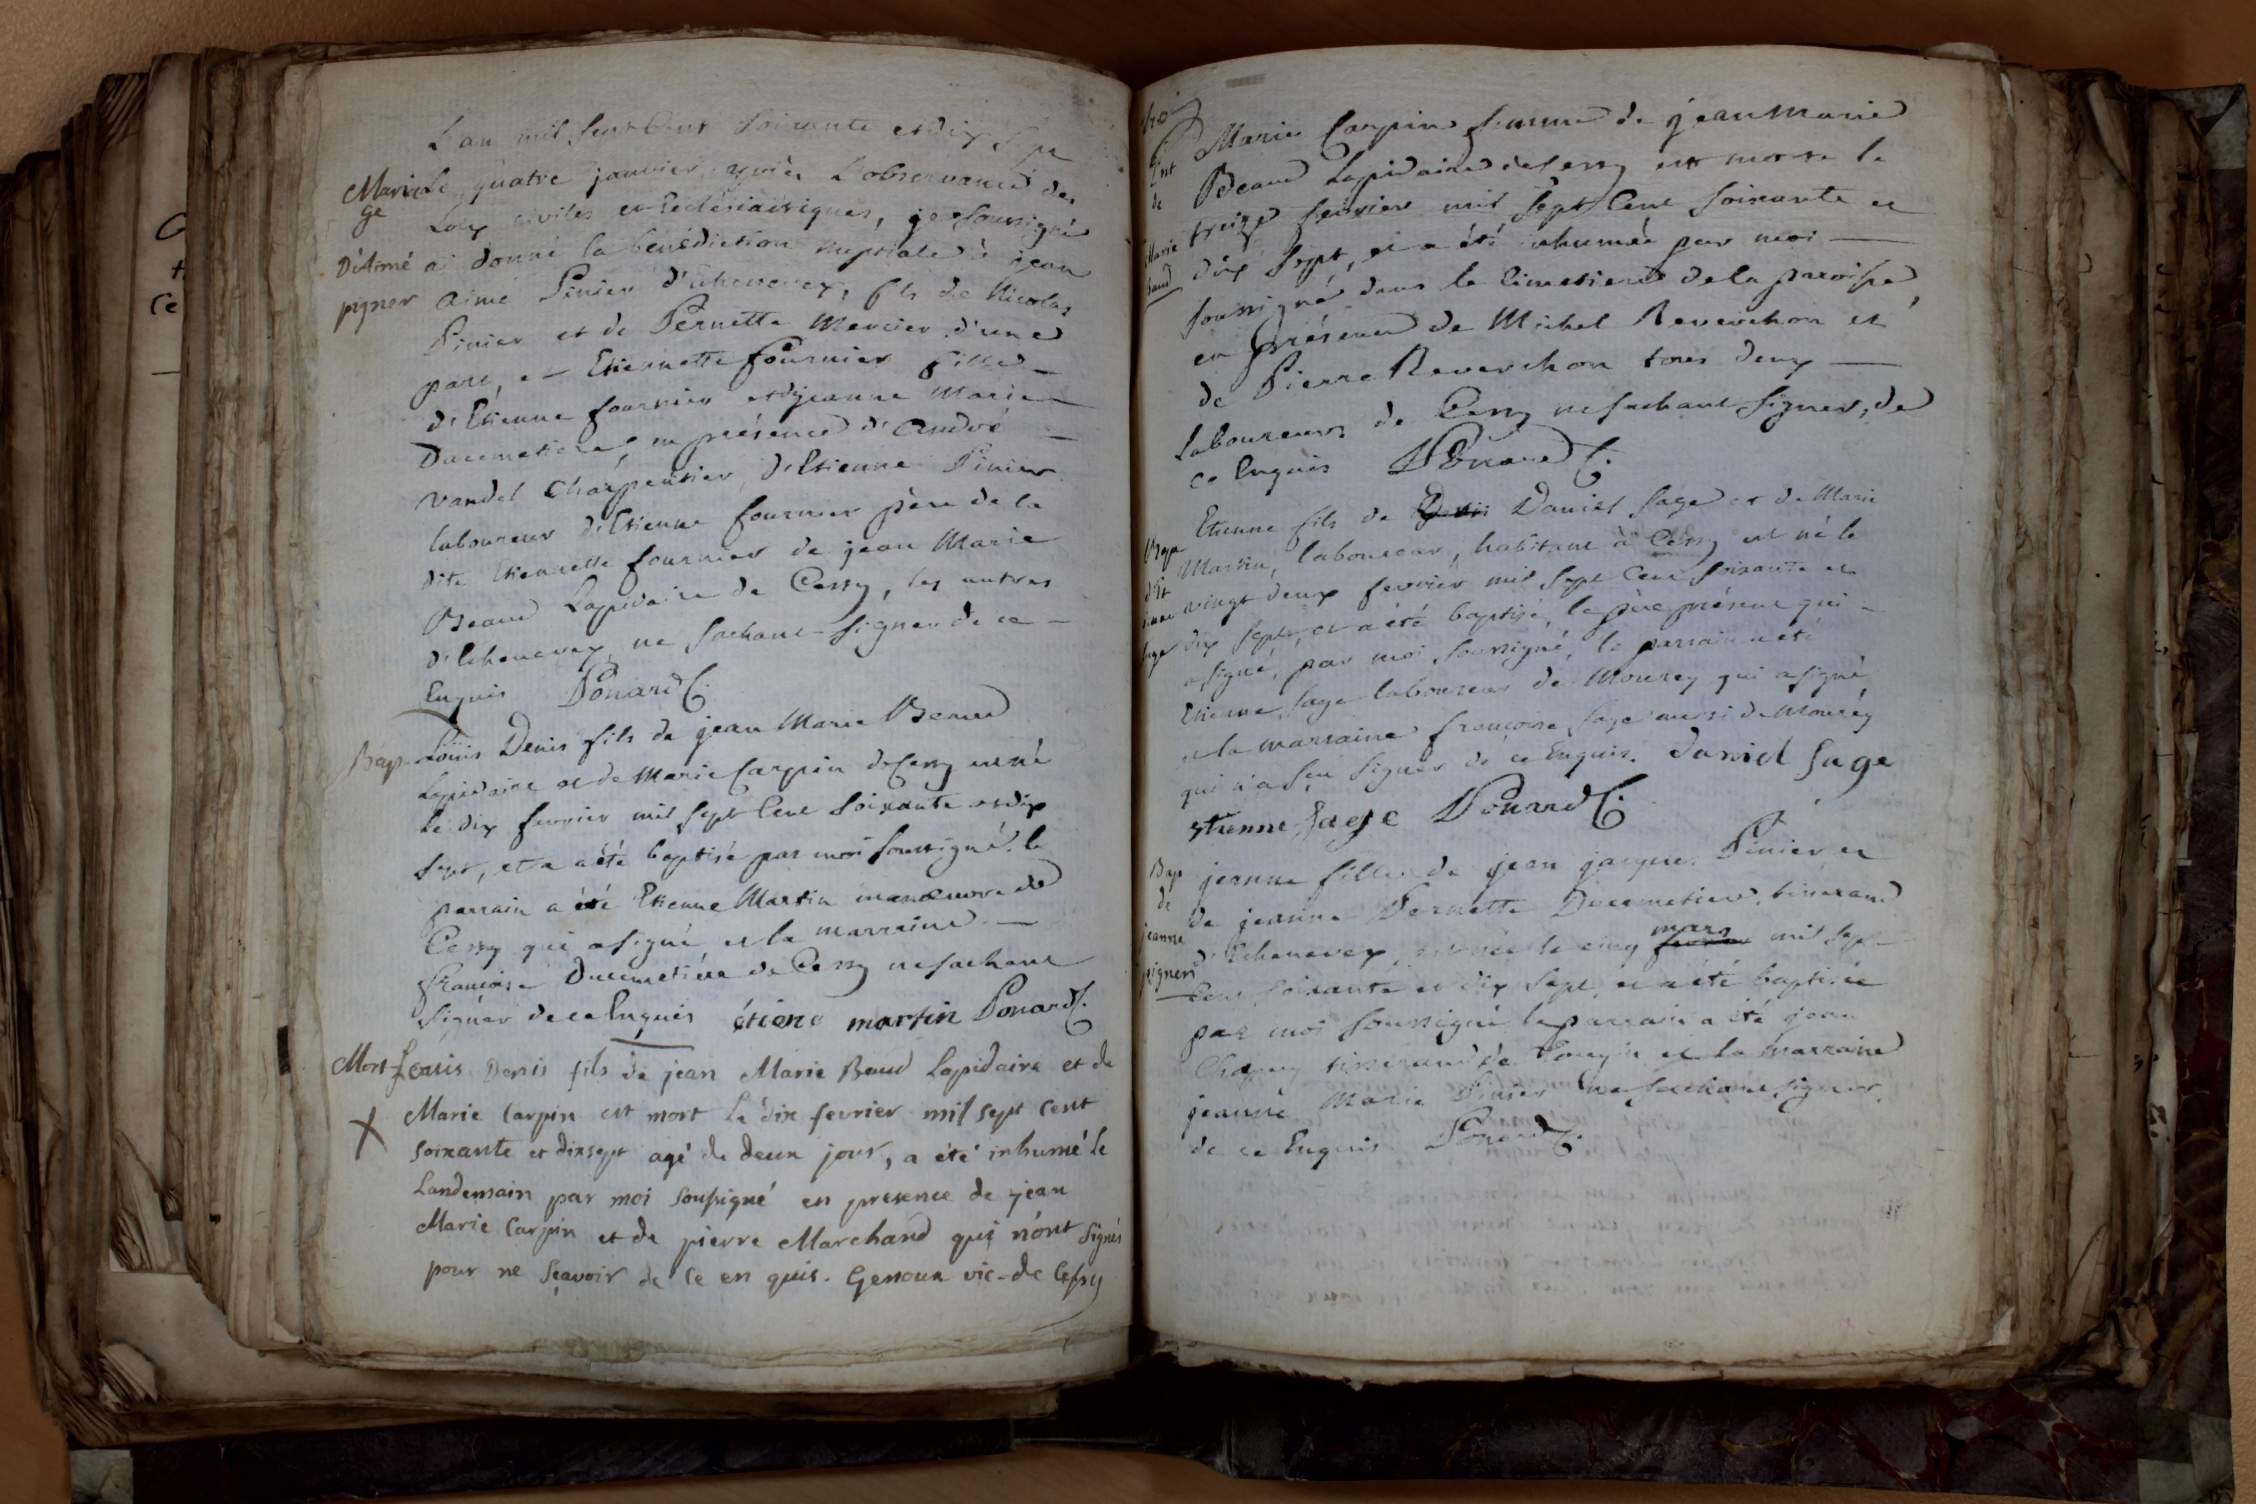 L'an mil sept Cent soixante et dix sept
Maria Le quatre janvier, après L'observance des
ge Loix civiles et Ecclésiastiques, je soussigné
D'Aimé ai donné la bénédiction nuptiale à jean
pigner aimé Pinier d'Echenevex, fils de Nicolas
Pinier et de Pernette Mercier d'une
part, et Etiennette fournier fille
d'Etienne fournier et de jeanne Marie
Ducimetière, en présence d'André
Vandel Charpentier, d'Etienne Pinier
laboureur d'Etienne fournier père de la
dite Etiennette fournier de jean Marie
Beaud Lapidaire de Cessy, les autres
d'Echenevex ne sachant signer de ce
Enquis Ponard C.
Bap Louis Denis fils de jean Marie Beaud
Lapidaire et de Marie Carpin de Cessy est né
le dix fevrier mil sept Cent soixante et dix
sept, et a été baptisé par moi soussigné. le
parrain a été Etienne Martin manoeuvre de
Cessy qui a signé et la marraine
françoise Ducimetière de Cessy ne sachant
signer de ce Enquis étiene martin Ponard C.
Mort Louis Denis fils de jean Marie Beaud Lapidaire et de
X Marie Carpin est mort le dix fevrier mil sept cent
soixante et dixsept agé de deux jour, a été inhumé le
Landemain par moi soussigné en presence de jean
Marie Carpin et de pierre Marchand qui n'ont signés
pour ne sçavoir de ce en quis. Genoux vic-de Cessy
Marie Carpin femme de jean Marie
Ent Beaud Lapidaire de Cessy est morte le
de treize fevrier mil sept Cent soixante et
Marie dix sept, et a été inhumée par moi
baud soussigné dans le Cimetiere de la paroisse
en présence de Michel Reverchon et
de Pierre Reverchon tous deux
laboureurs de Cessy ne sachant signer, de
ce Enquis Ponard C.
Etienne fils de Daniel Sage et de Marie
Bap Martin, laboureur, habitant à Cessy est né le
d'Et vingt deux fevrier mil sept Cent soixante et
ienne dix sept, et a été baptisé, le père présent qui
Sage a signé, par moi soussigné, le parrain a été
Etienne Sage laboureur de Mourey qui a signé
et la marraine françoise Sage aussi de Mourey
qui n'a sçu signer de ce Enquis. daniel sage
etienne sage Ponard C.
Bap jeanne fille de jean jacques Pinier et
de de jeanne Pernette Ducimetier, tisserand
jeanne d'Echenevex, est née le cinq mars mil sept
pigner Cent soixante et dix sept, et a été baptisée
par moi soussigné le parrain a été jean
tisserand de Tougin et la marraine
jeanne Marie Pinier ne sachant signer,
de ce Enquis Ponard C.